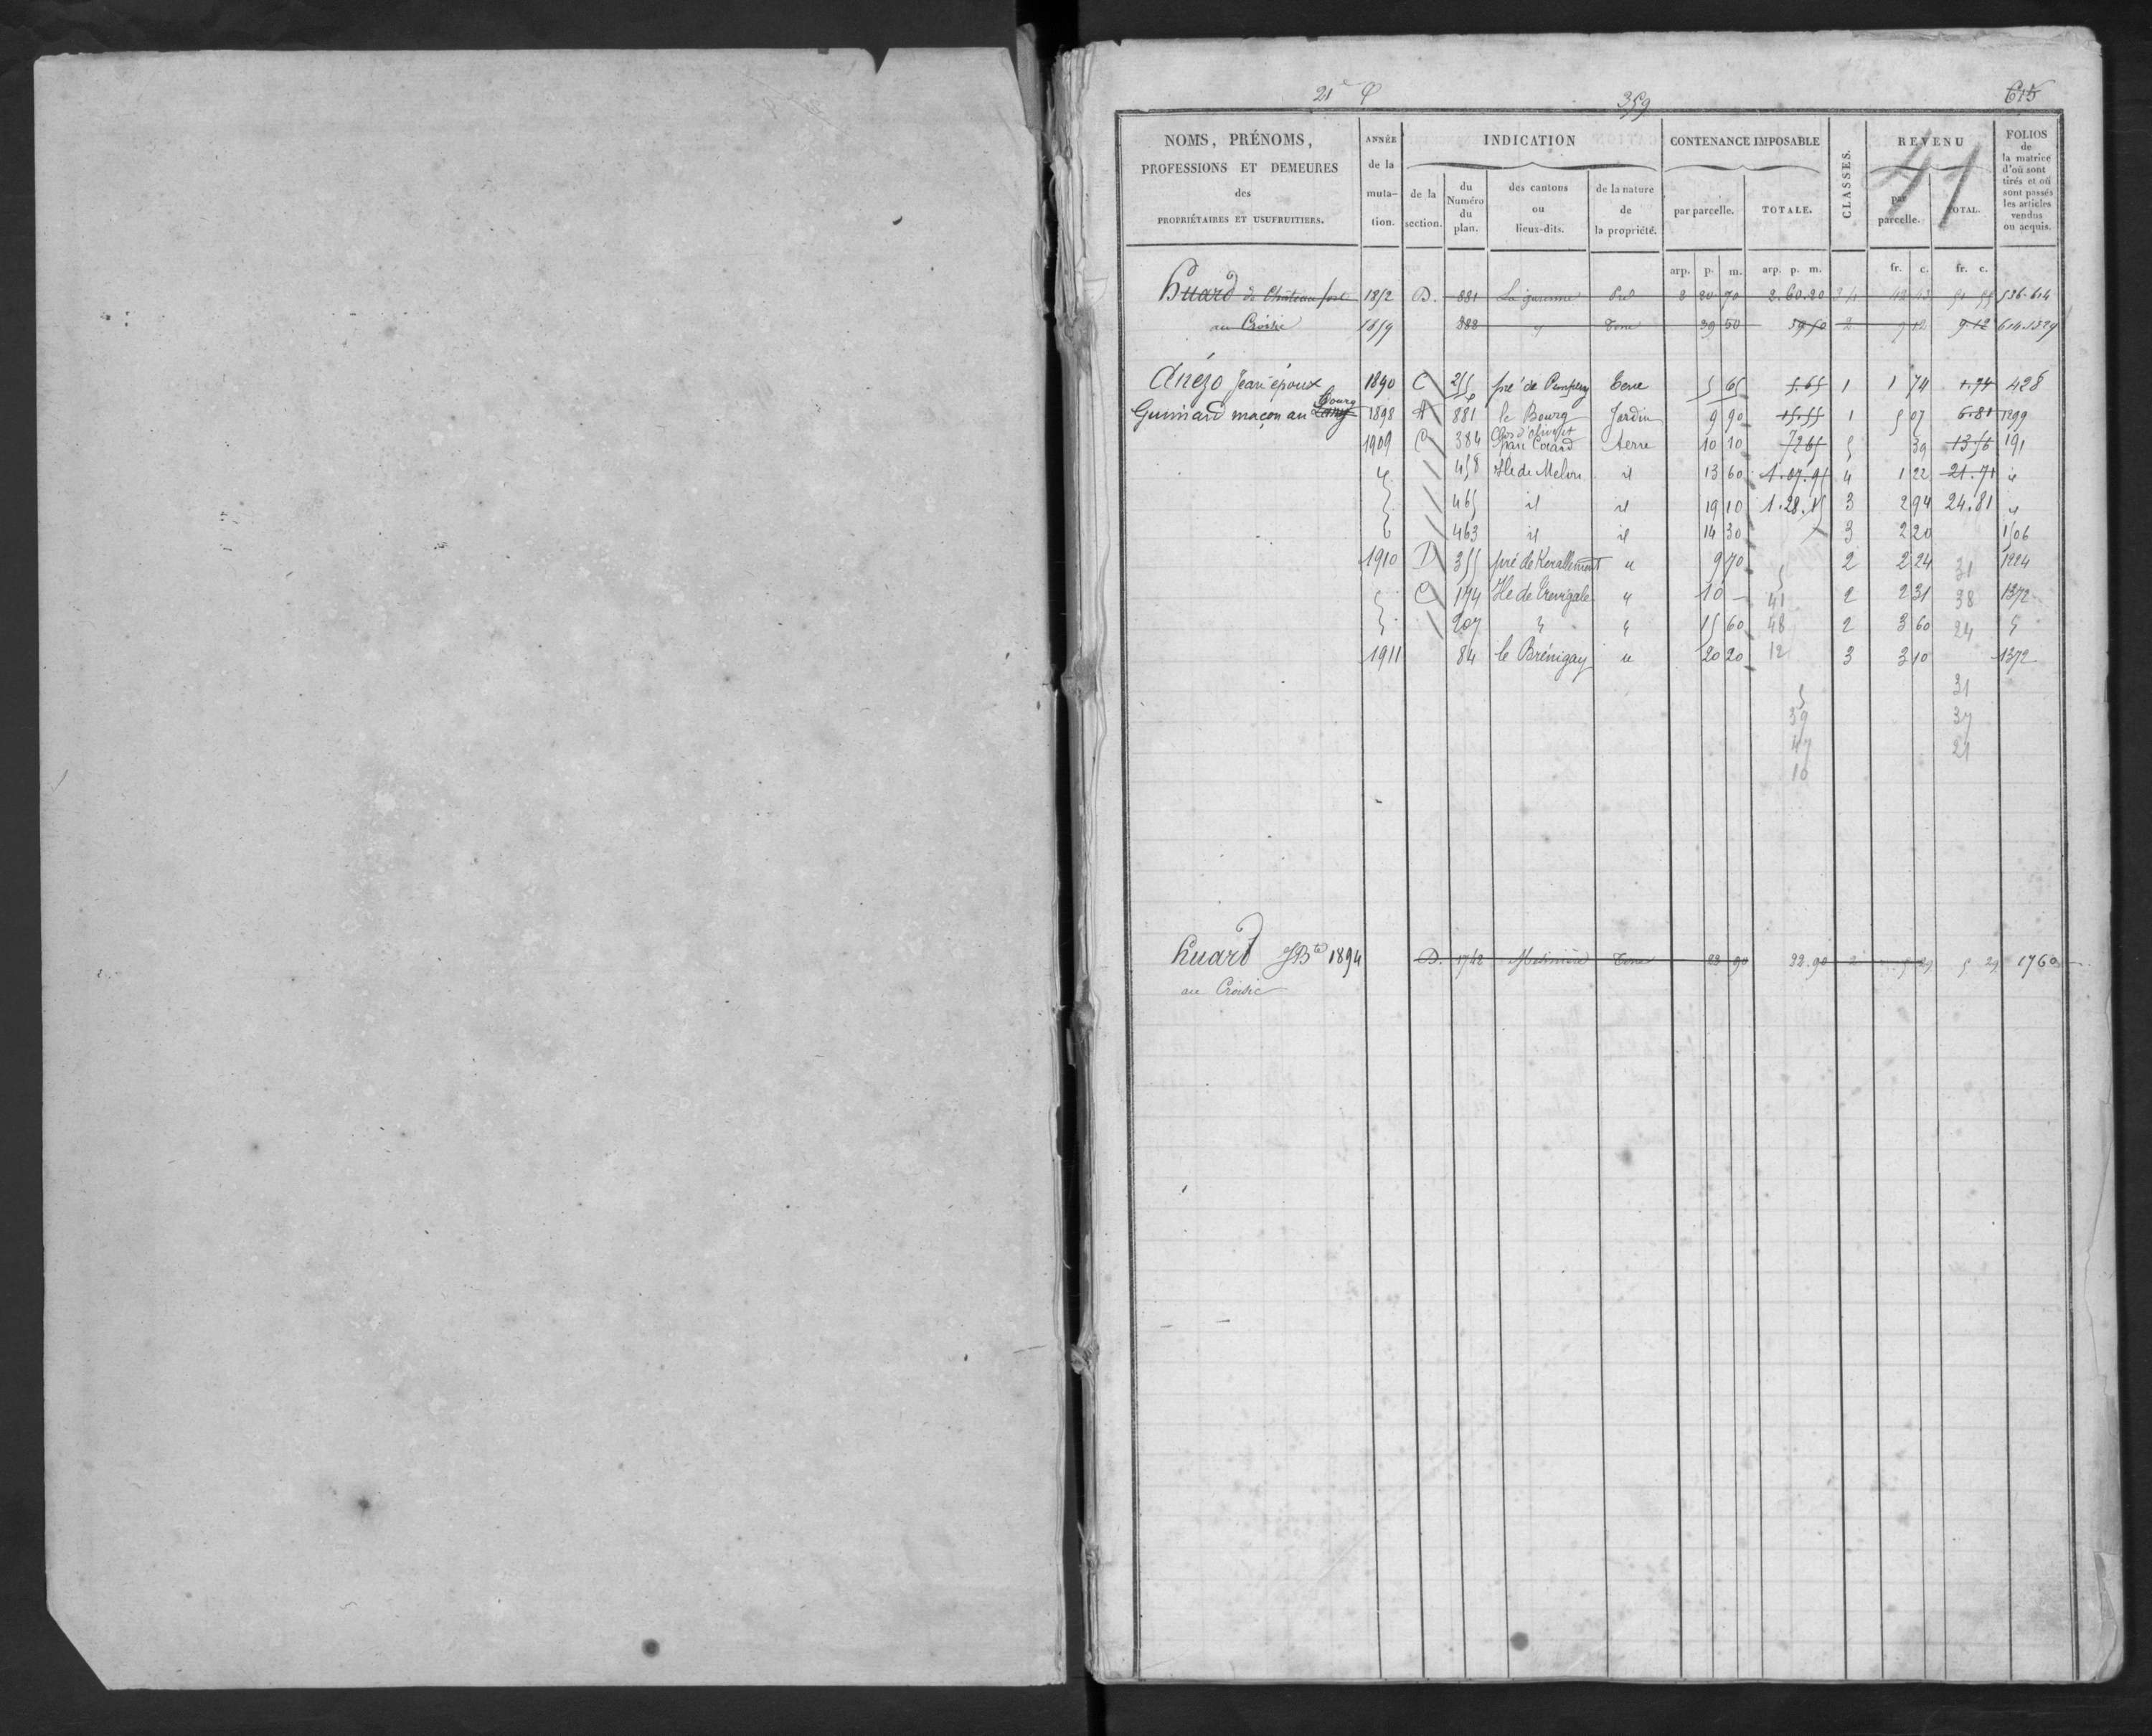 21e
359
615
41
NOMS, PRÉNOMS, PROFESSIONS ET DEMEURES des PROPRIÉTAIRES ET USUFRUITIERS.
ANNÉE de la muta-tion.
INDICATION
de la section.
du Numéro du plan.
des cantons ou lieux-dits.
de la nature de la propriété.
CONTENANCE IMPOSABLE
par parcelle.
TOTALE.
CLASSES.
REVENU
par parcelle.
TOTAL.
FOLIOS de la matrice d'où sont tirés et où sont passés les articles vendus ou acquis.
arp. p. m. arp. p. m. fr. c. fr. c.
Huard de Chateaufort 1852 D. 881 La garenne Pré 2 20 70 2.60.20 3 4 42 43 51 55 536-614
au Croisic 1859 888 " Terre 39 50 39 50 2 9 12 9 12 614-1329
Anézo Jean époux 1890 C 255 pré de Terre 5 65 5.65 1 1 74 1.74 428
Guimard maçon au Bourg 1898 A 881 le Bourg Jardin 9 90 15.55 1 5 07 6.81 1299
1909 C 384 Clos d'olivet terre 10 10 72 65 5 39 13.56 191
" 458 Ile de Melon id 13 60 1.07.95 4 1 22 21.71 id
465 id id 19 10 1.28.15 3 2 94 24.81 id
463 id id 14 30 3 2 20 1506
1910 D 355 pré de Kerallement " 9 70 2 2 24 31 1224
C 174 Ile de Trevigale " 10 - 41 2 2 31 38 1372
207 " " 15 60 48 2 3 60 24 "
1911 84 le Brénigay " 20 20 12 3 3 10 1372
5 31
39 37
47 21
10
huard JBte 1894 D. 1742 Terre 22 90 22.90 2 5 21 5 21 1760
au Croisic